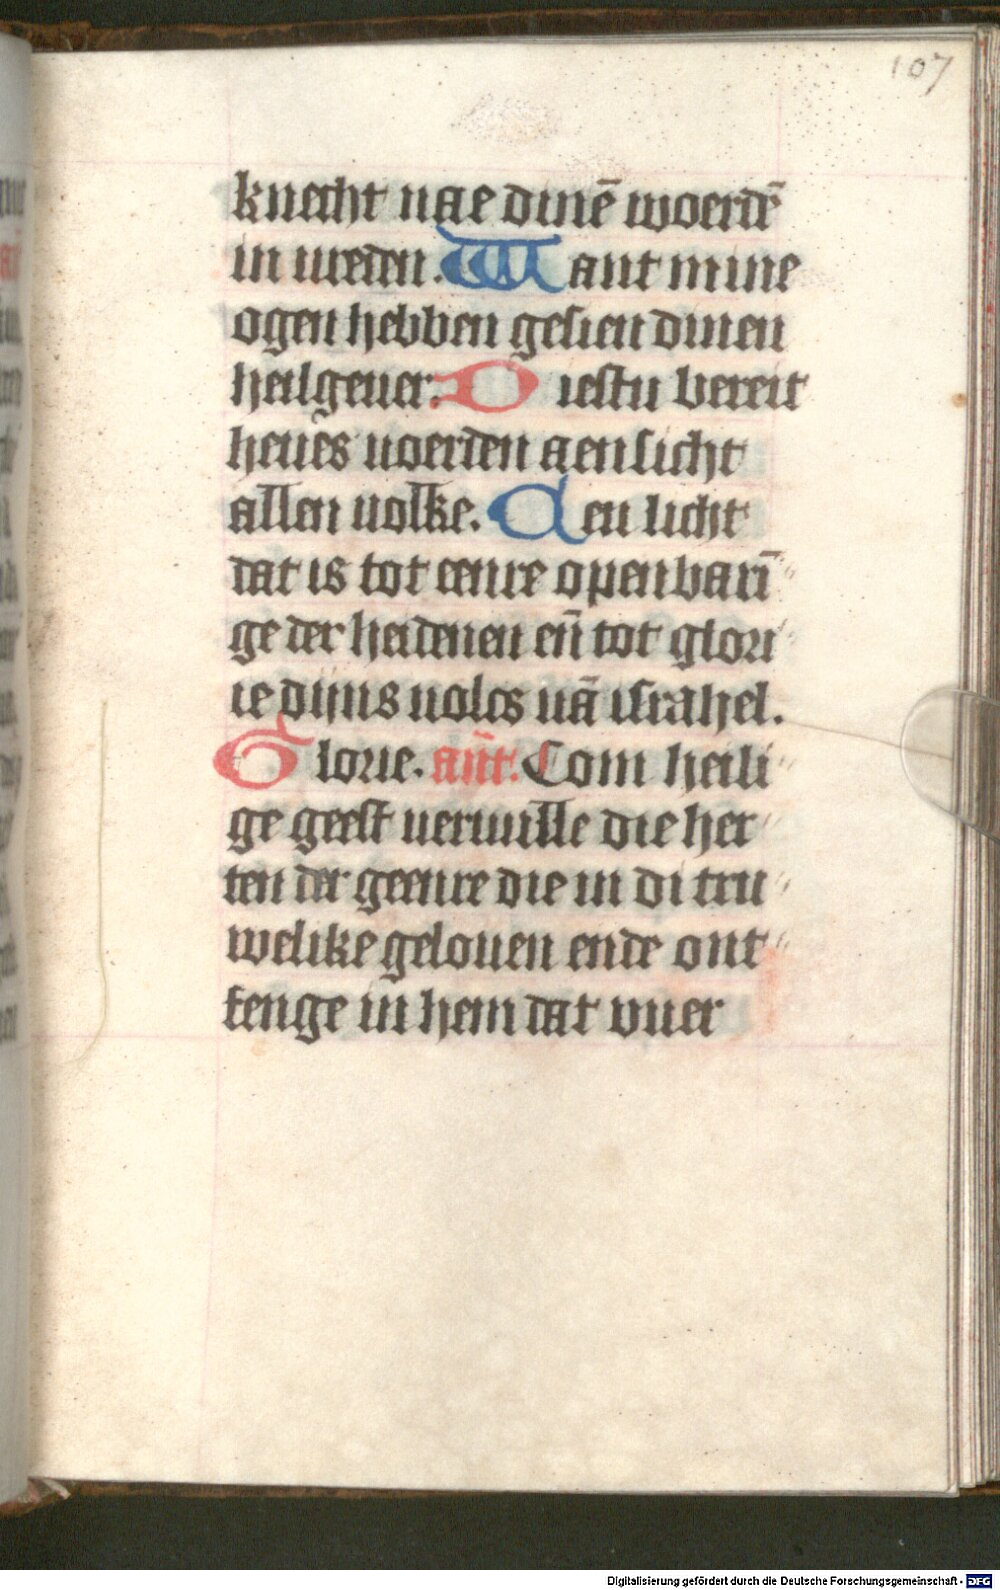 107
knecht nae dinē woerdē
in ureden. Want mine
ogen hebben gesien dinen
heilgeuer. Diestu bereit
heues uoerden aensicht
allen uolke. Een licht
dat is tot eenre openbarī
ge der heidenen eñ tot glori
ie dijns uolcs uā israhel.
Glorie. añt. Com heili
ge geest ueruulle die her
ten der geenre die in di tru
welike gelouen ende ont
fenge in hem dat vuer
Digitalisierung gefördert durch die Deutsche Forschungsgemeinschaft - DFG